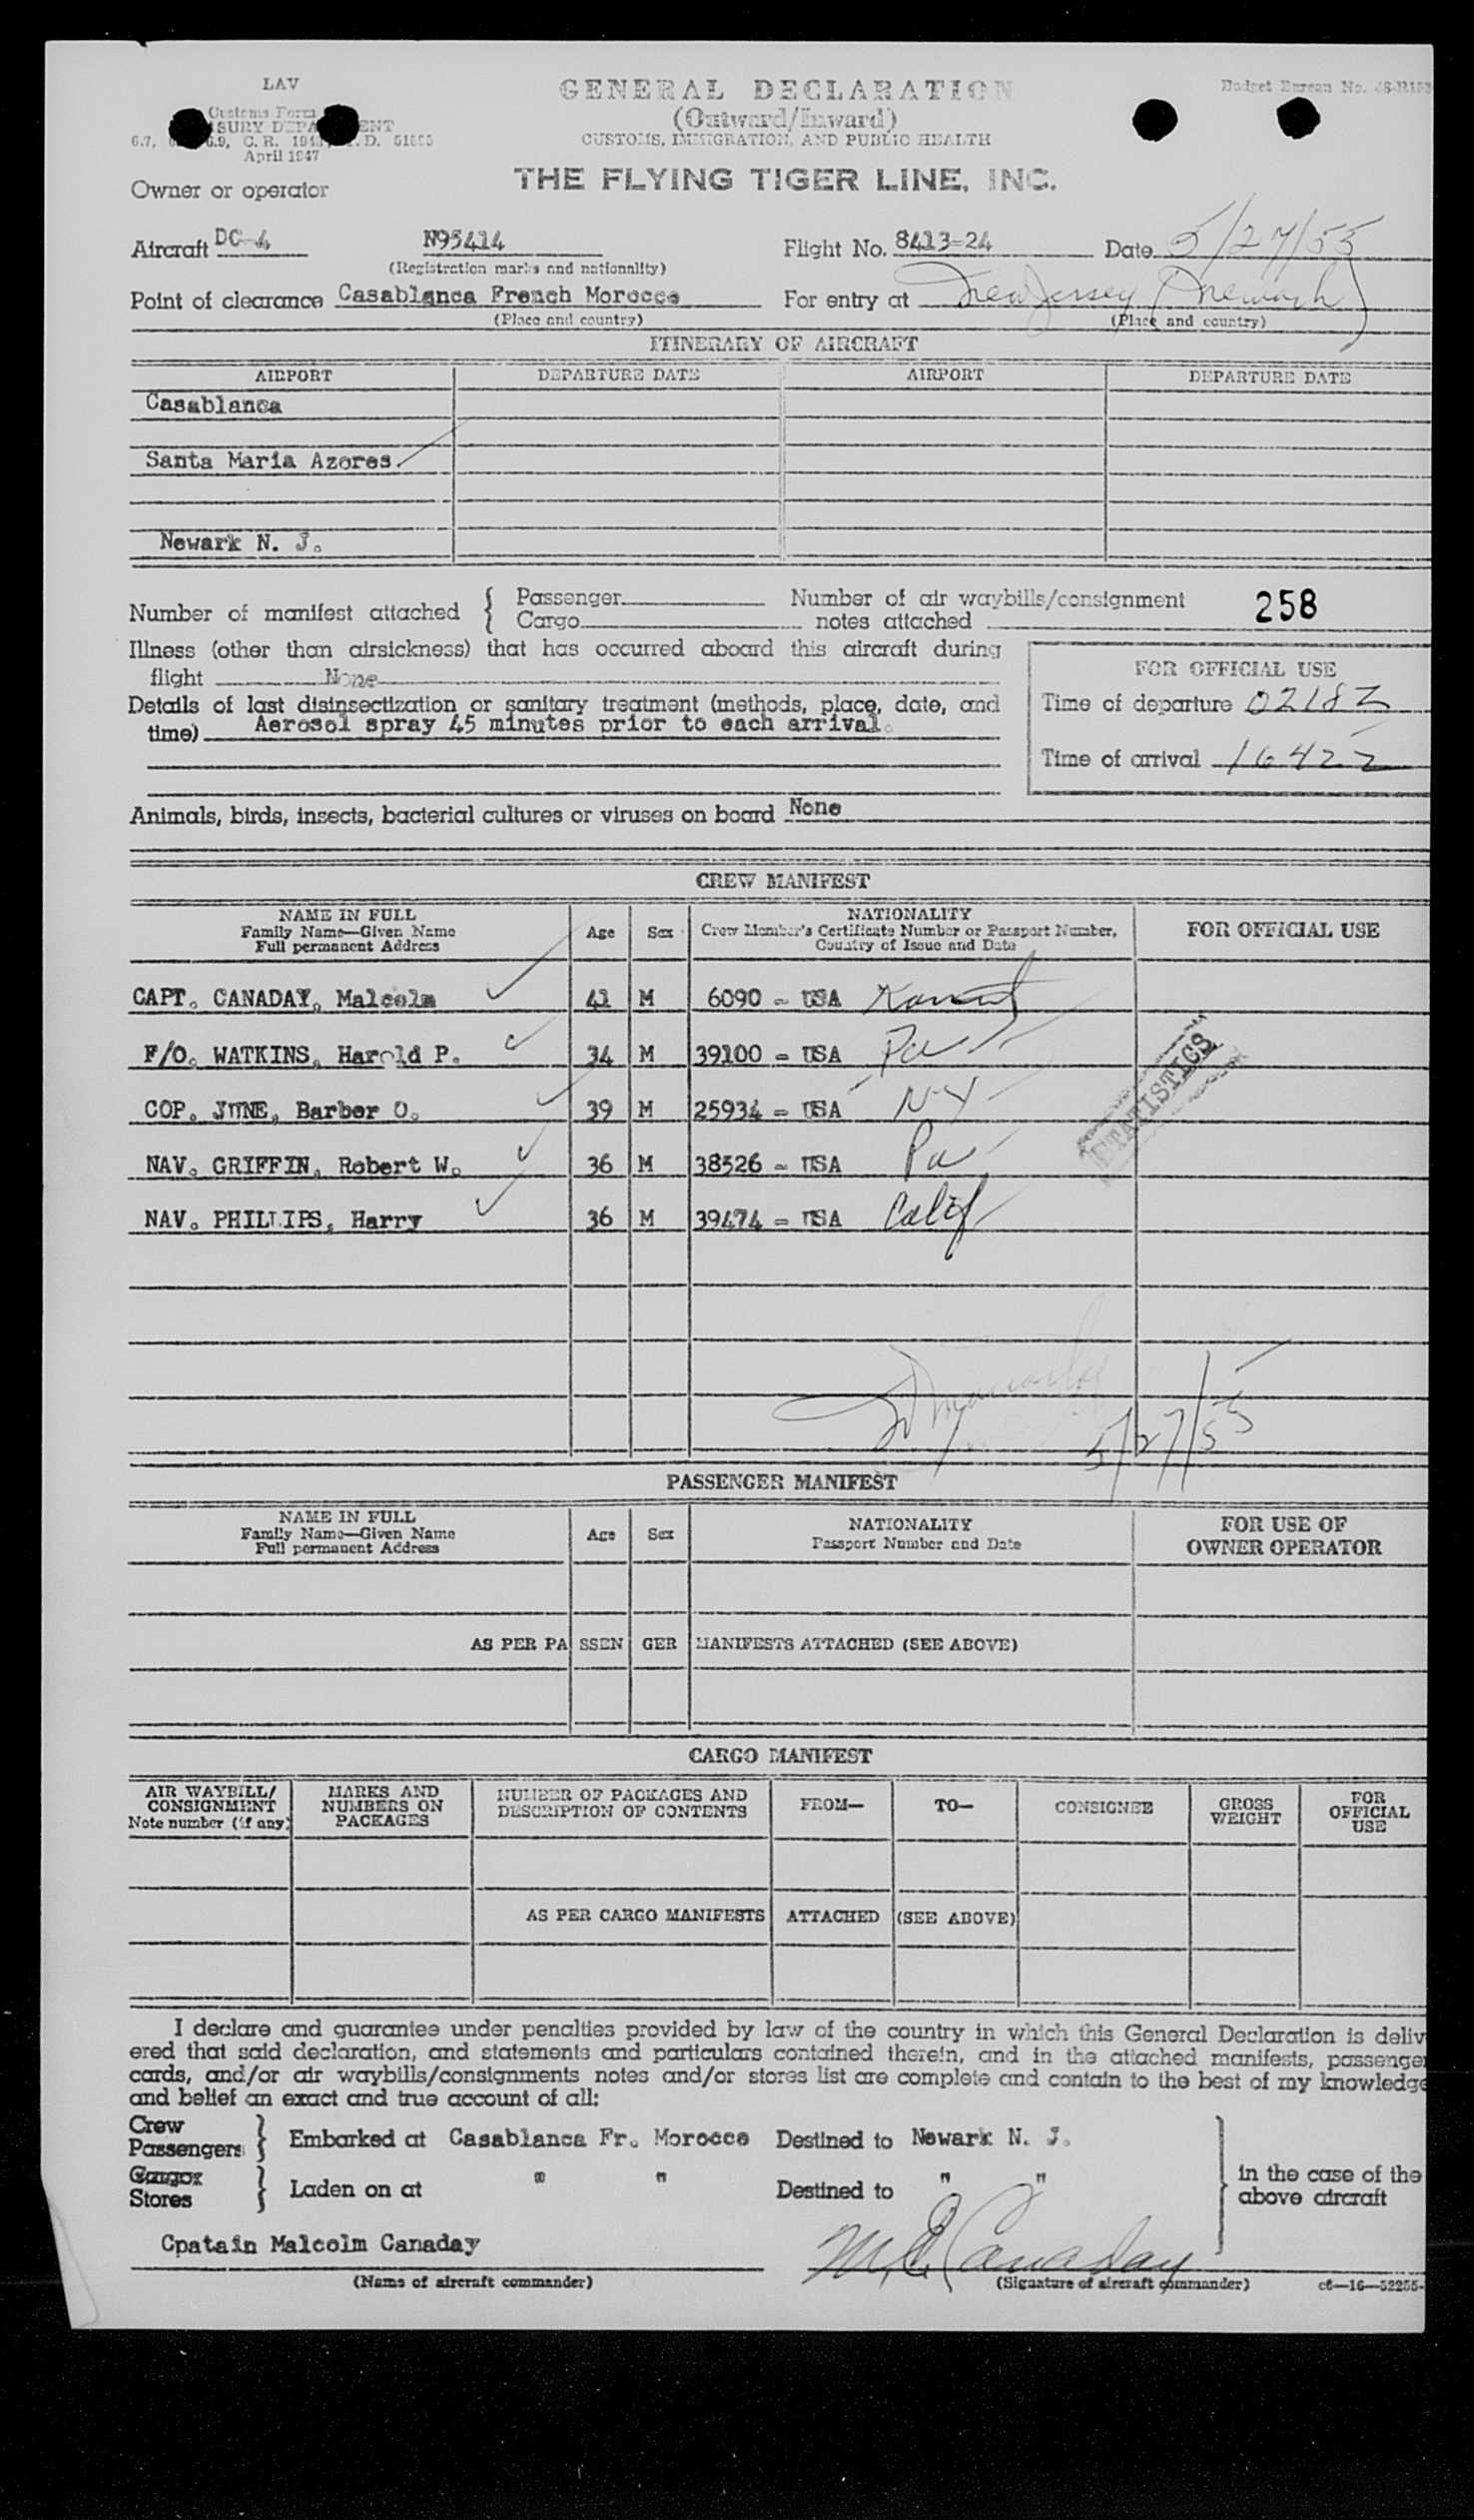 LAV
GENERAL DECLARATION
(Outward/Inward)
CUSTOMS, IMMIGRATION, AND PUBLIC HEALTH
Customs Form
April 1947
Budget Bureau No.
THE FLYING TIGER LINE, INC.
Owner or operator
Aircraft DC-4 N95414 Flight No. 8413-24 Date 5/27/55
(Registration marks and nationality)
Point of clearance Casablanca French Morocco For entry at New Jersey (Newark)
(Place and country) (Place and country)
ITINERARY OF AIRCRAFT
AIRPORT DEPARTURE DATE AIRPORT DEPARTURE DATE
Casablanca
Santa Maria Azores
Newark N. J.
Number of manifest attached { Passenger Number of air waybills/consignment
Cargo notes attached 258
Illness (other than airsickness) that has occurred aboard this aircraft during
flight None
FOR OFFICIAL USE
Details of last disinsectization or sanitary treatment (methods, place, date, and
time) Aerosol spray 45 minutes prior to each arrival.
Time of departure 0218Z
Time of arrival 1642Z
Animals, birds, insects, bacterial cultures or viruses on board None
CREW MANIFEST
NAME IN FULL
Family Name—Given Name
Full permanent Address
Age Sex
NATIONALITY
Crew Member's Certificate Number or Passport Number,
Country of Issue and Date
FOR OFFICIAL USE
CAPT. CANADAY, Malcolm 41 M 6090 - USA
F/O. WATKINS, Harold P. 34 M 39100 - USA Pa
COP. JUNE, Barber O. 39 M 25934 - USA N-Y
NAV. GRIFFIN, Robert W. 36 M 38526 - USA Pa
NAV. PHILLIPS, Harry 36 M 39474 - USA Calif
STATISTICS
5/27/55
PASSENGER MANIFEST
NAME IN FULL
Family Name—Given Name
Full permanent Address
Age Sex
NATIONALITY
Passport Number and Date
FOR USE OF
OWNER OPERATOR
AS PER PA SSEN GER MANIFESTS ATTACHED (SEE ABOVE)
CARGO MANIFEST
AIR WAYBILL/
CONSIGNMENT
Note number (if any)
MARKS AND
NUMBERS ON
PACKAGES
NUMBER OF PACKAGES AND
DESCRIPTION OF CONTENTS
FROM—
TO—
CONSIGNEE
GROSS
WEIGHT
FOR
OFFICIAL
USE
AS PER CARGO MANIFESTS ATTACHED (SEE ABOVE)
I declare and guarantee under penalties provided by law of the country in which this General Declaration is deliv
ered that said declaration, and statements and particulars contained therein, and in the attached manifests, passenger
cards, and/or air waybills/consignments notes and/or stores list are complete and contain to the best of my knowledge
and belief an exact and true account of all:
Crew
Passengers } Embarked at Casablanca Fr. Morocco Destined to Newark N. J.
Cargo
Stores } Laden on at " " Destined to " "
in the case of the
above aircraft
Cpatain Malcolm Canaday M. E. Canaday
(Name of aircraft commander) (Signature of aircraft commander) c6—16—52255-